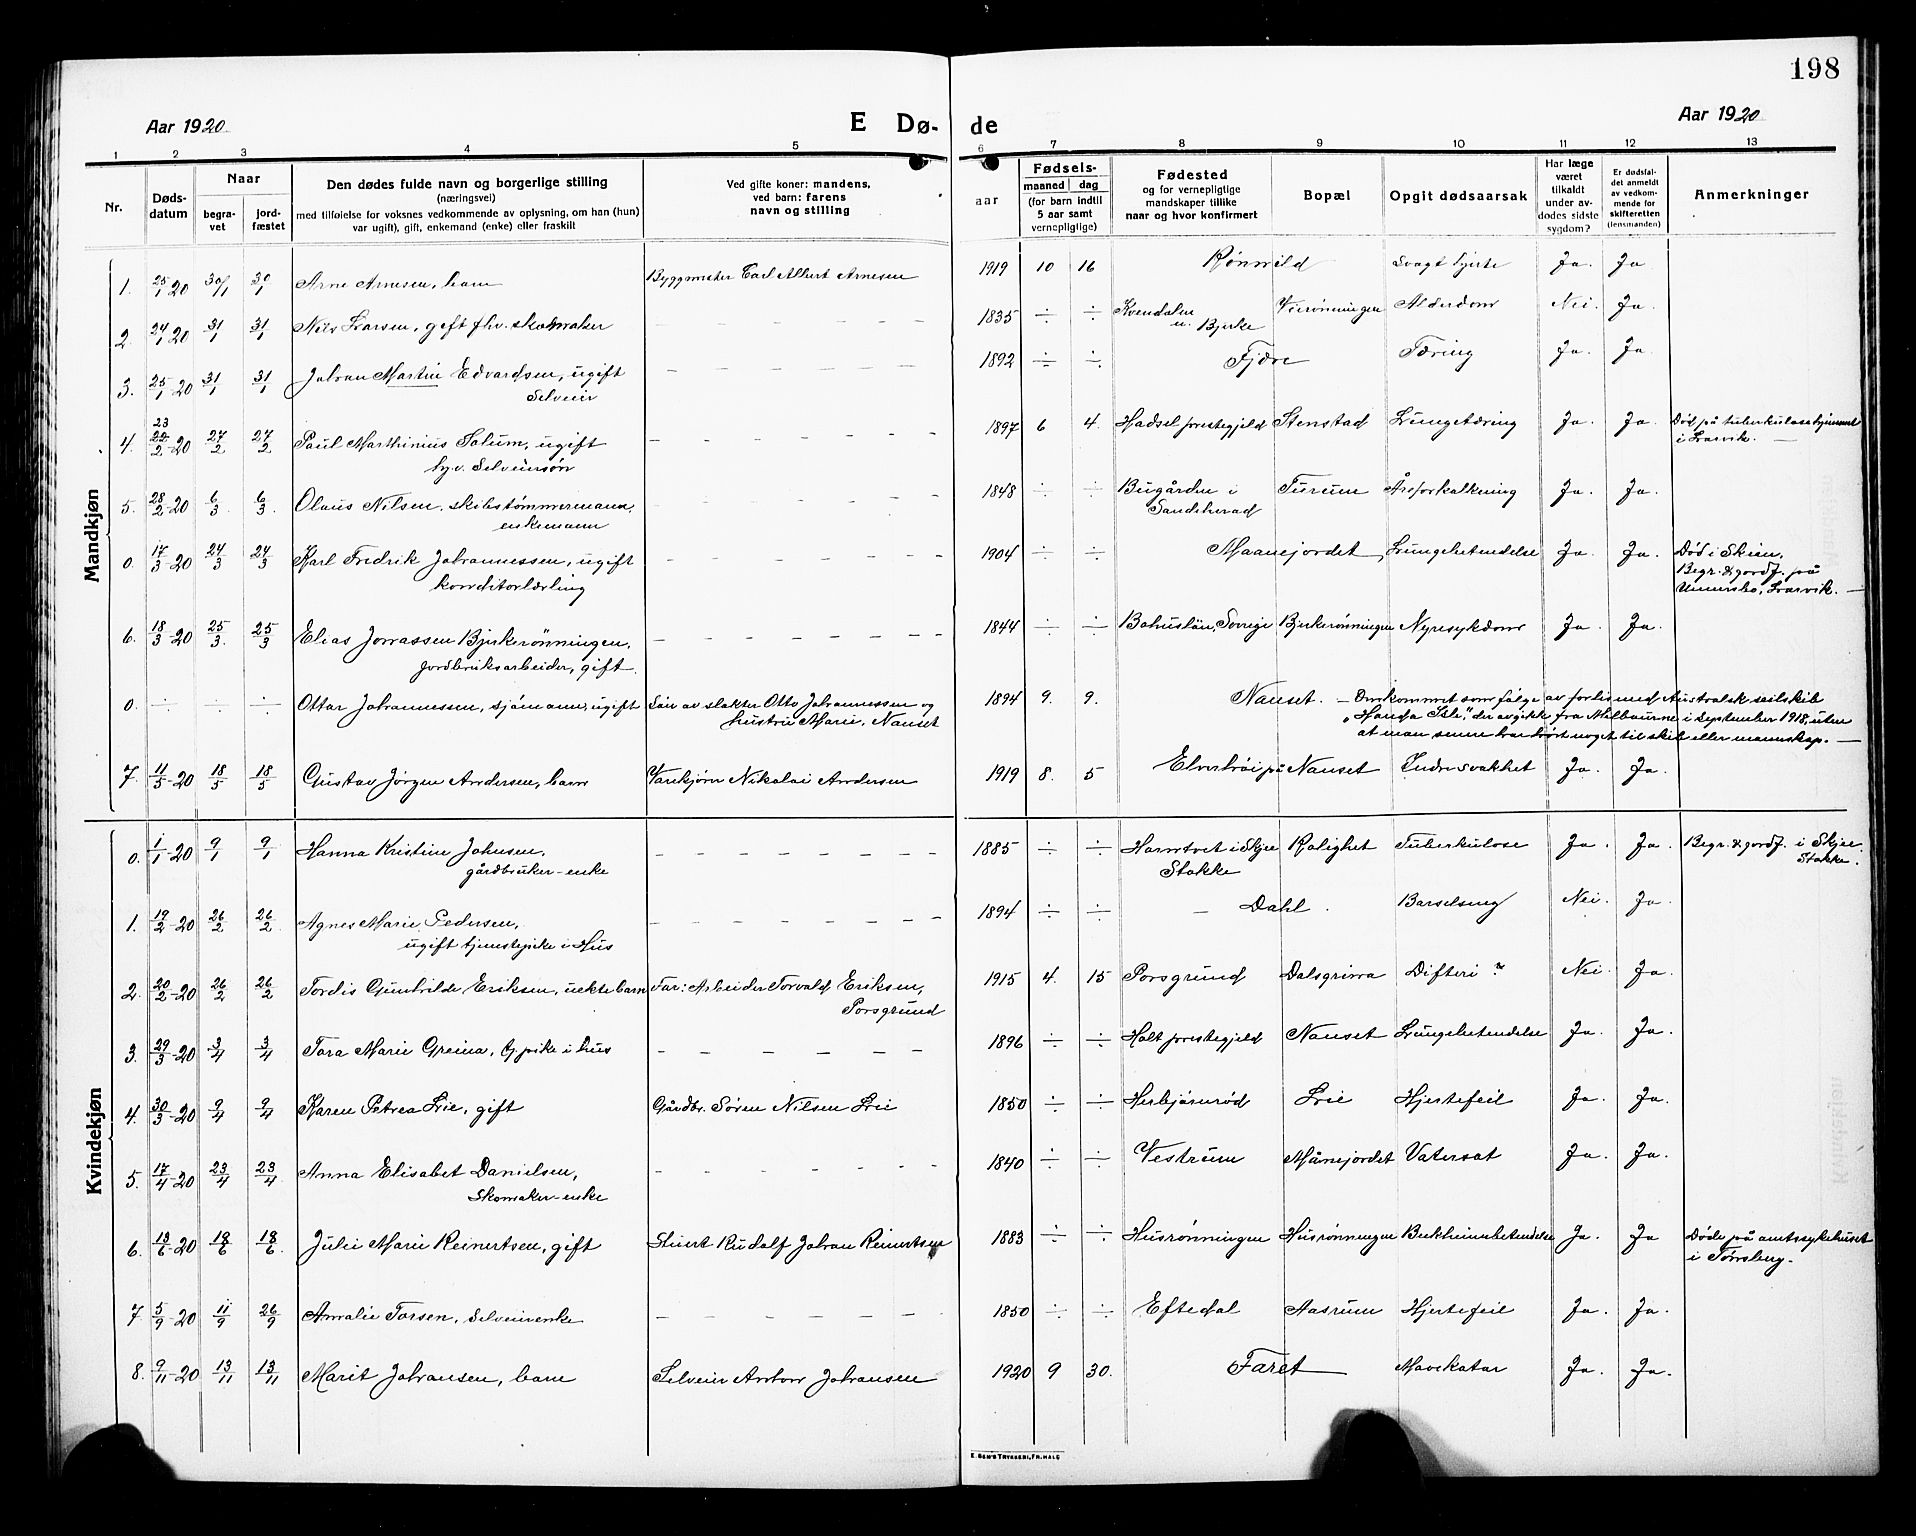 198
Aar 1920
E Dø-
de
Aar 1920
1 2 3 4 5 6 7 8 9 10 11 12 13
Nr.
Døds-
datum
Naar
begra-
vet
jord-
fæstet
Den dødes fulde navn og borgerlige stilling
(næringsvei)
med tilføielse for voksnes vedkommende av oplysning, om han (hun)
var ugift), gift, enkemand (enke) eller fraskilt
Ved gifte koner: mandens,
ved barn: farens
navn og stilling
Fødsels-
aar
maaned dag
(for barn indtil
5 aar samt
vernepligtige)
Fødested
og for vernepligtige
mandskaper tillike
naar og hvor konfirmert
Bopæl
Opgit dødsaarsak
Har læge
været
tilkaldt
under av-
dødes sidste
sygdom?
Er dødsfal-
det anmeldt
av vedkom-
mende for
skifteretten
(lensmanden)
Anmerkninger
Mandkjøn
1. 25/1 20 30/1 30/1 Arne Arnesen, barn Byggmester Carl Albert Arnesen 1919 10 16 Rønvild Svagt hjerte Ja. Ja
2. 24/1 20 31/1 31/1 Nils Larsen, gift fhv. skomaker — — — — — — 1835 ÷ ÷ Kvendalen u. Bjerke Vierønningen Alderdom Nei. Ja.
3. 25/1-20 31/1 31/1 Johan Martin Edvardsen, ugift
Selveier — — — — — — 1892 ÷ ÷ Fjære Tæring Ja. Ja.
4. 23 22/2-20 27/2 27/2 Paul Marthinius Solum, ugift
Selveiersøn — — — — — — 1897 6 4. Hadsel prestegjeld Stenstad Lungetæring Ja. Ja. Død på tuberkulosehjemmet
i Larvik. —
5. 28/2-20 6/3. 6/3. Olaus Nilsen, skibstømmermann,
enkemann — — — — — — 1848 ÷ ÷ Bugården i
Sandeherad Furum Årsforkalkning Ja. Ja.
0. 17/3-20 24/3 24/3 Karl Fredrik Johannessen, ugift
konditorlærling — — — — — — 1904 ÷ ÷ Maanejordet, Lungebetendelse Ja. Ja. Død i Skien.
Begr. & jordf. på
Undersbo, Larvik. —
6. 18/3-20 25/3. 25/3 Elias Jonassen Bjerkerønningen,
jordbruksarbeider, gift. — — — — — — 1844 ÷ ÷ Bohuslän, Sverige Bjerkerønningen Nyresykdom Ja. Ja.
0. ÷ ÷ ÷ Ottar Johannessen, sjømann, ugift Søn av slakter Otto Johannessen og
hustru Marie, Nanset 1894 9. 9. Nanset. — Omkommet som følge av forlis med Australsk seilskib
"Handa Isle," der avgikk fra Melbourne i september 1918, uten
at man senere har hørt noget til skib eller mannskap. —
7. 11/5-20 18/5 18/5 Gustav Jørgen Andersen, barn Vannkjører Nikolai Andersen 1919 8. 5 Elverhøi på Nanset Indre svakhet Ja. Ja.
Kvindekjøn
0. 1/1-20 9/1 9/1 Hanna Kristine Johnsen,
gårdbruker-enke — — — — — — — 1885 ÷ ÷ Hamtvet i Skjee
Stokke Rolighet Tuberkulose Ja. Ja. Begr. & jordf. i Skjee
Stokke.
1. 19/2-20 26/2 26/2 Agnes Marie Pedersen,
ugift tjenestepike i Hus — — — — — — — 1894 ÷ ÷ — Dahl. Barselseng Nei. Ja.
2. 20/2-20 26/2 26/2 Tordis Gunhilde Eriksen, uekte barn Far: Arbeider Torvald Eriksen,
Porsgrund 1915 4. 15 Porsgrund Dalsgrima Difteri ? Nei. Ja.
3. 29/3-20 3/4 3/4 Tora Marie Greina, G. pike i hus — — — — — 1896 ÷ ÷ Holt prestegjeld Nanset Lungebetendelse Ja. Ja.
4. 30/3-20 9/4 9/4 Karen Petrea Lie, gift Gårdbr. Søren Nilsen Lie 1850 ÷ ÷ Herbjørnrød Lie Hjertefeil Ja. Ja.
5. 17/4-20 23/4 23/4 Anna Elisabet Danielsen,
Skomaker-enke — — — — — — — 1840 ÷ ÷ Vestrum Månejordet Vatersot Ja. Ja.
6. 13/6-20 18/6 18/6. Julie Marie Reinertsen, gift Stuert Rudolf Johan Reinertsen 1883 ÷ ÷ Husrønningen Husrønningen Bukhinnebetendelse Ja. Ja Døde på amtssykehuset
i Tønsberg.
7. 5/9-20 11/9 26/9 Amalie Torsen, selveierenke — — — — — — 1850 ÷ ÷ Eftedal Aasrum Hjertefeil Ja. Ja.
8. 9/11-20 13/11 13/11 Marit Johansen, barn Selveier Anton Johansen 1920 9 30. Faret Mavekatar Ja. Ja.